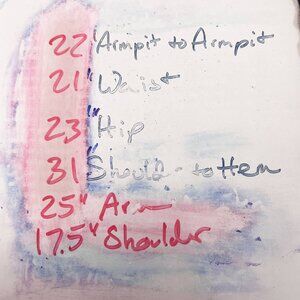 22" Armpit to Armpit
21" Waist
23" Hip
31" Should - to Hem
25" Arm
17.5" Shoulder